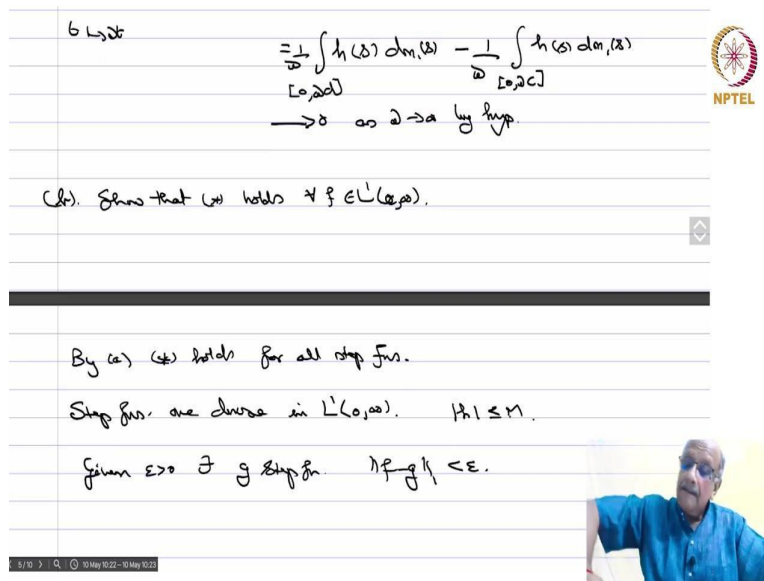 = 1/ω ∫ h(s) dm₁(s) − 1/ω ∫ h(s) dm₁(s)
[0,ωd] [0,ωc]
⟶ 0 as by hyp.
NPTEL
(b). Show that (*) holds ∀ f ∈ L¹(0,∞).
By (a) (*) holds for all step fns.
Step fns. are dense in L¹(0,∞). |h| ≤ M.
Given ε>0 ∃ g step fn. ‖f−g‖₁ < ε.
5/10 10 May 10:22 – 10 May 10:23